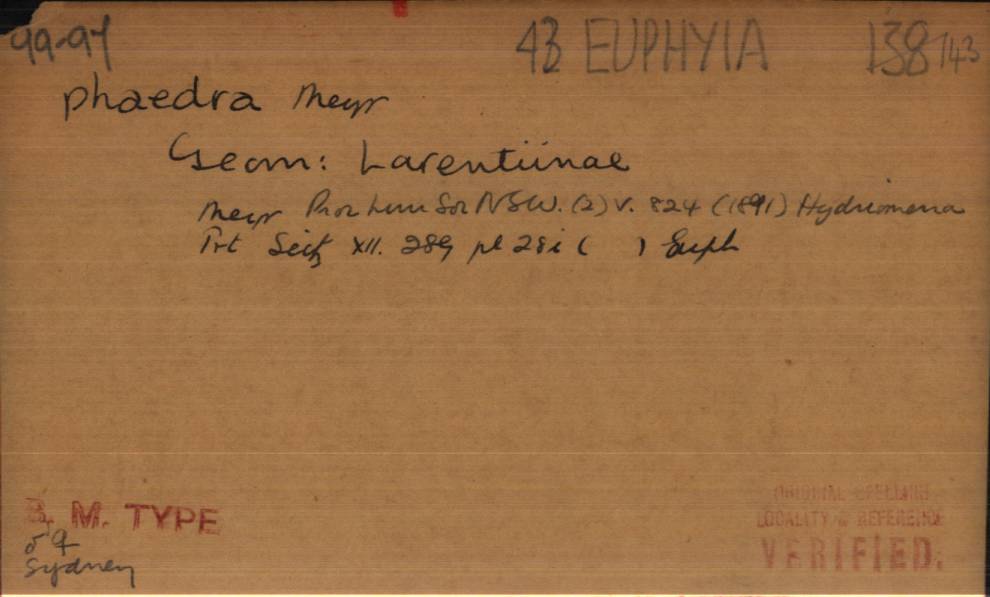 99-97 43 EUPHYIA 138/143
phaedra Meyr
Geom: Larentiinae
Meyr Proc Linn Soc NSW. (2) V. 824 (1891) Hydriomena
Prt Seitz XII. 289 pl 28i ( ) Euph
B. M. TYPE
♂ ♀
Sydney
ORIGINAL SPELLING
LOCALITY & REFERENCE
VERIFIED.